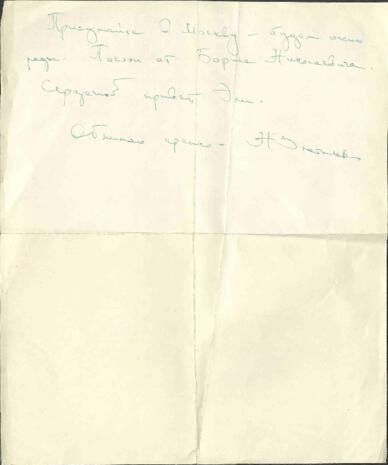 Приезжайте в Москву – будем очень
рады. Поклон от Бориса Николаевича.
Сердечный привет Эми.
Обнимаю крепко –